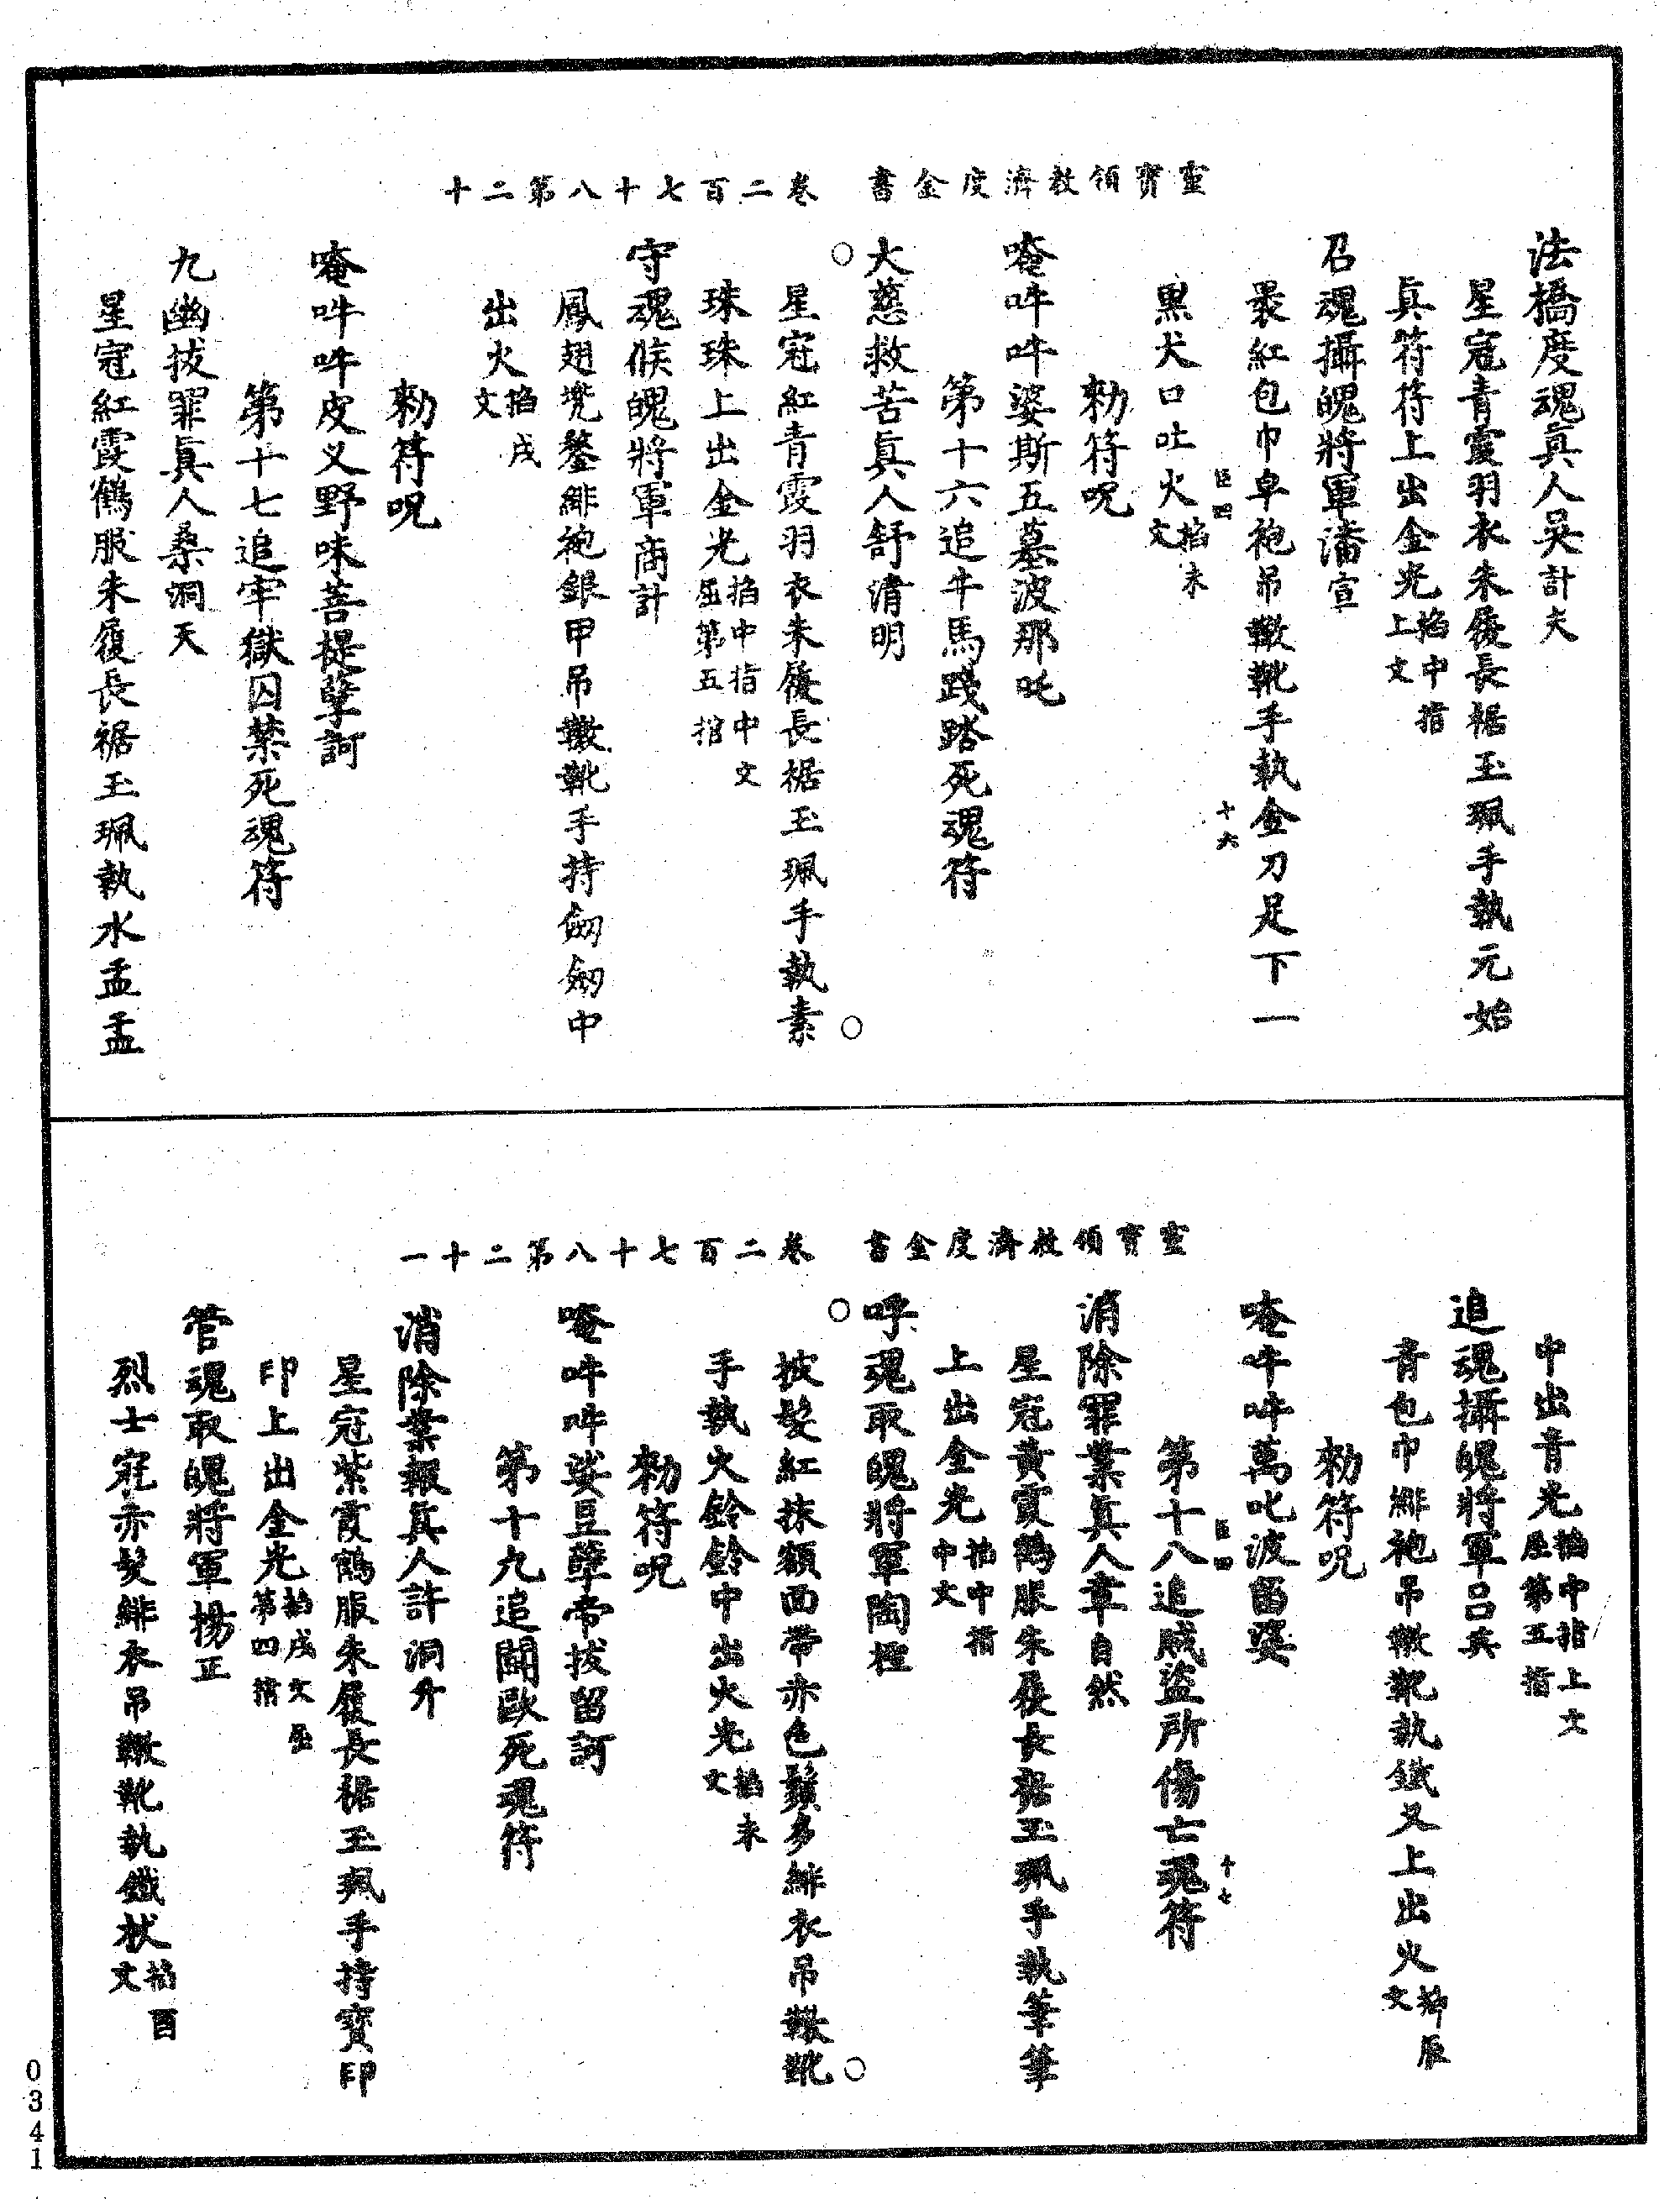 靈寶領教濟度金書　卷二百七十八第二十
法橋度魂真人吳計夫
星冠青霞羽衣朱履長裾玉珮手執元始
眞符符上出金光掐中指上文
召魂攝魄將軍潘宣
裹紅包巾皁袍吊䩫靴手執金刀足下一
黑犬口吐火掐未文
臣四　十六
勑符呪
唵吽吽婆斯五墓波那吒
第十六追牛馬踐踏死魂符
大慈救苦眞人舒清明
星冠紅青霞羽衣朱履長裾玉珮手執素
珠珠上出金光掐中指中文屈第五指
守魂候魄將軍商計
鳳翅兠鍪緋袍銀甲吊䩫靴手持劒劒中
出火掐戌文
勑符呪
唵吽吽皮义野咪菩提孽訶
第十七追牢獄囚禁死魂符
九幽拔罪眞人桑洞天
星冠紅霞鶴服朱履長裾玉珮執水盂盂
靈寶領教濟度金書　卷二百七十八第二十一
中出青光掐中指上文屈第五指
追魂攝魄將軍呂兵
青包巾緋袍吊䩫靴執鐵叉上出火掐辰文
勑符呪
唵吽吽萬叱波留婆
臣四　十七
第十八追賊盜所傷亡魂符
消除罪業眞人章自然
星冠黃霞鶴服朱履長裾玉珮手執筆筆
上出金光掐中指中文
呼魂取魄將軍陶極
披髮紅抹額面帶赤色鬚多緋衣吊䩫靴
手執火鈴鈴中出火光掐未文
勑符呪
唵吽吽娑豆孽帝拔留訶
第十九追鬭歐死魂符
消除業報眞人許洞升
星冠紫霞鶴服朱履長裾玉珮手持寶印
印上出金光掐戌文屈第四指
管魂取魄將軍揚正
烈士冠赤髮緋衣吊䩫靴執鐵杖掐酉文
0341